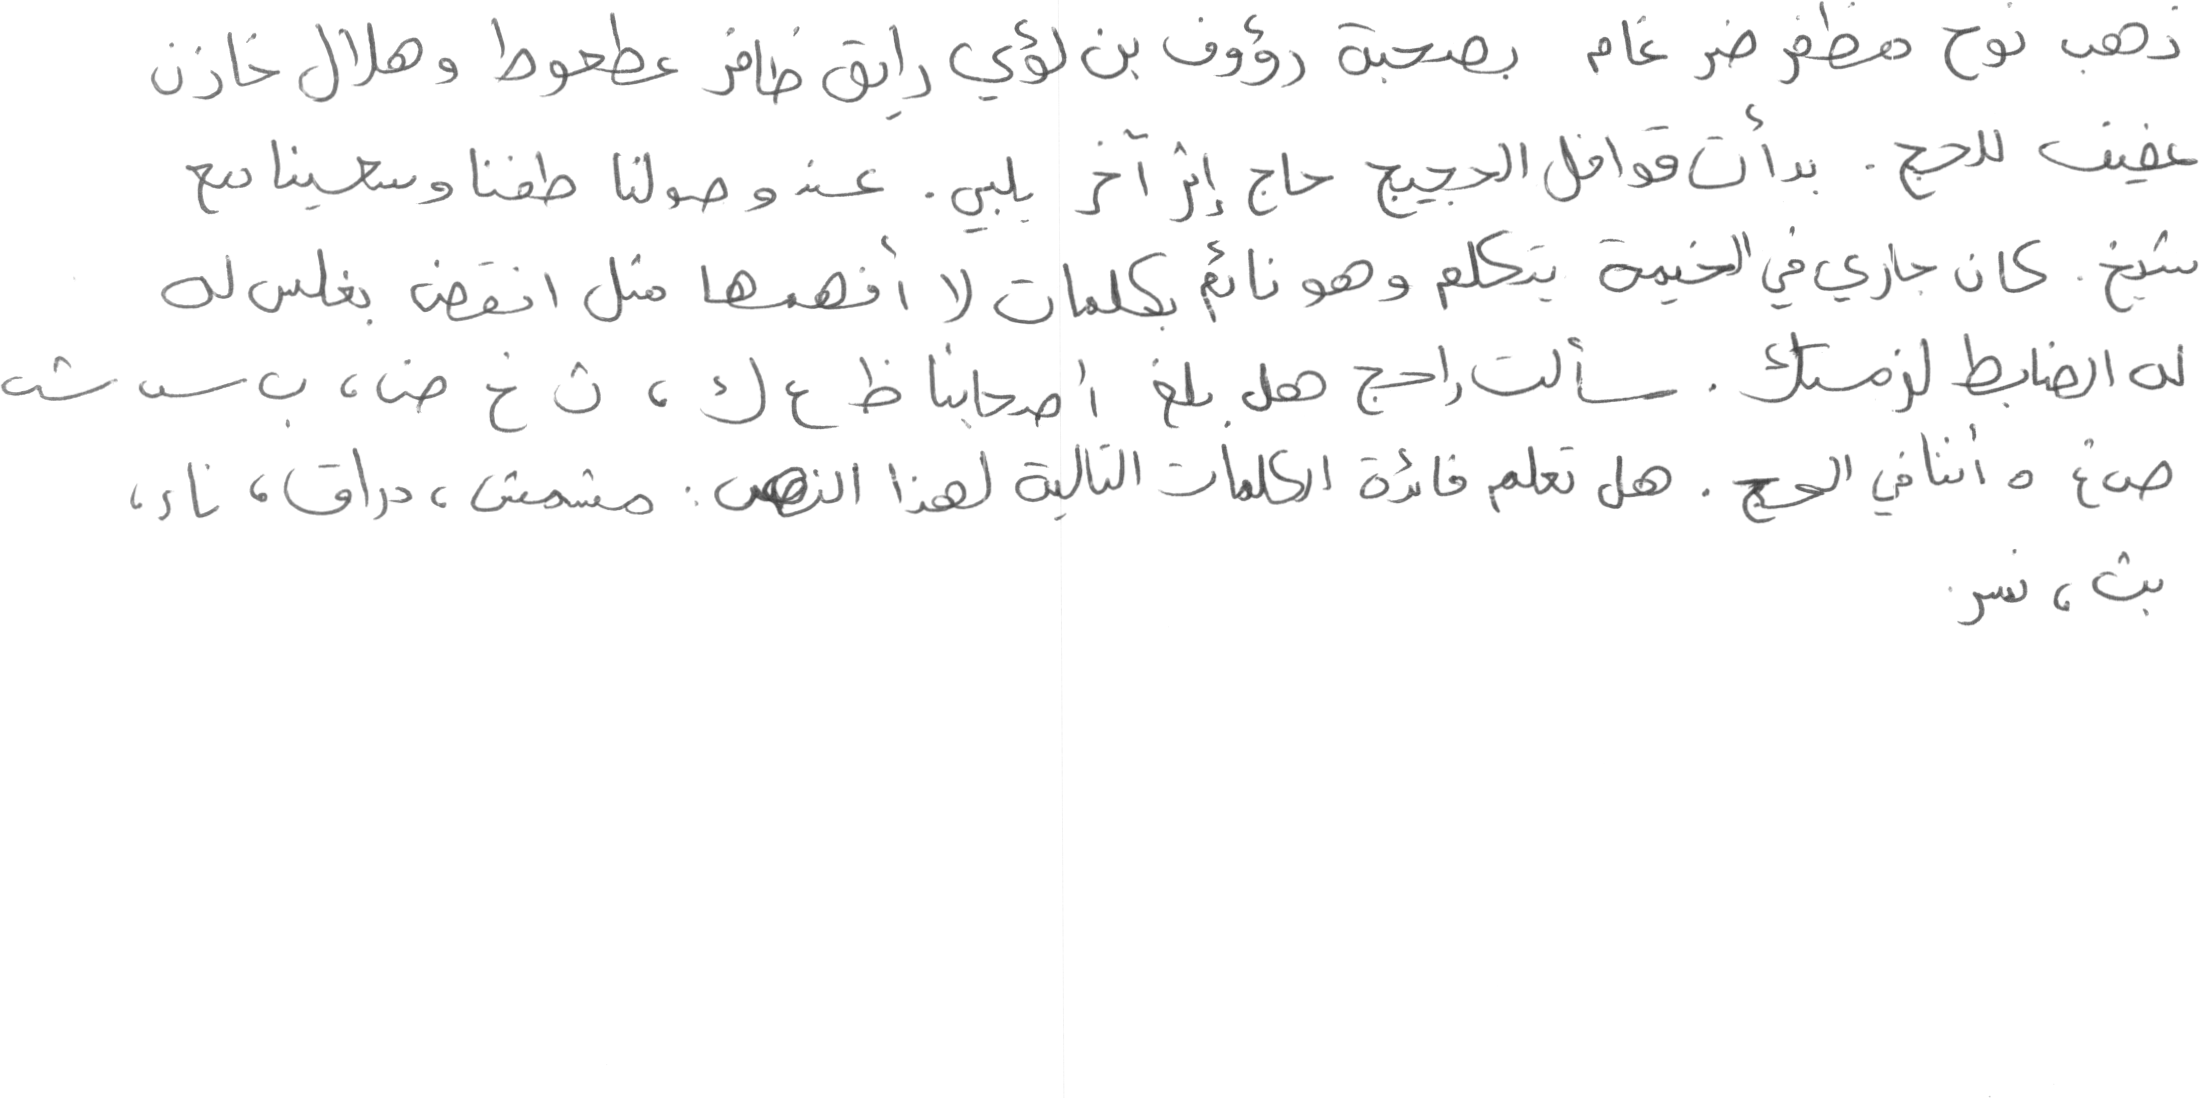 ذهب نوح مظفر ضرغام بصحبة رؤوف بن لؤي رايق ظافر عطعوط وهلال خازن
عفيف للحج . بدأت قوافل الحجيج حاج إثر آخر يلبي . عند وصولنا طفنا وسعينا مع
شيخ . كان جاري في الخيمة يتكلم وهو نائم بكلمات لا أفهمها مثل انقض بغلس له
له الضابط لزمستك . سألت راجح هل بلغ أصحابنا ظ ع ك ، ث خ ض ، ب س ش
ص غ ه أننا في الحج . هل تعلم فائدة الكلمات التالية لهذا النص : مشمش ، دراق ، ناء ،
بث ، نسر .